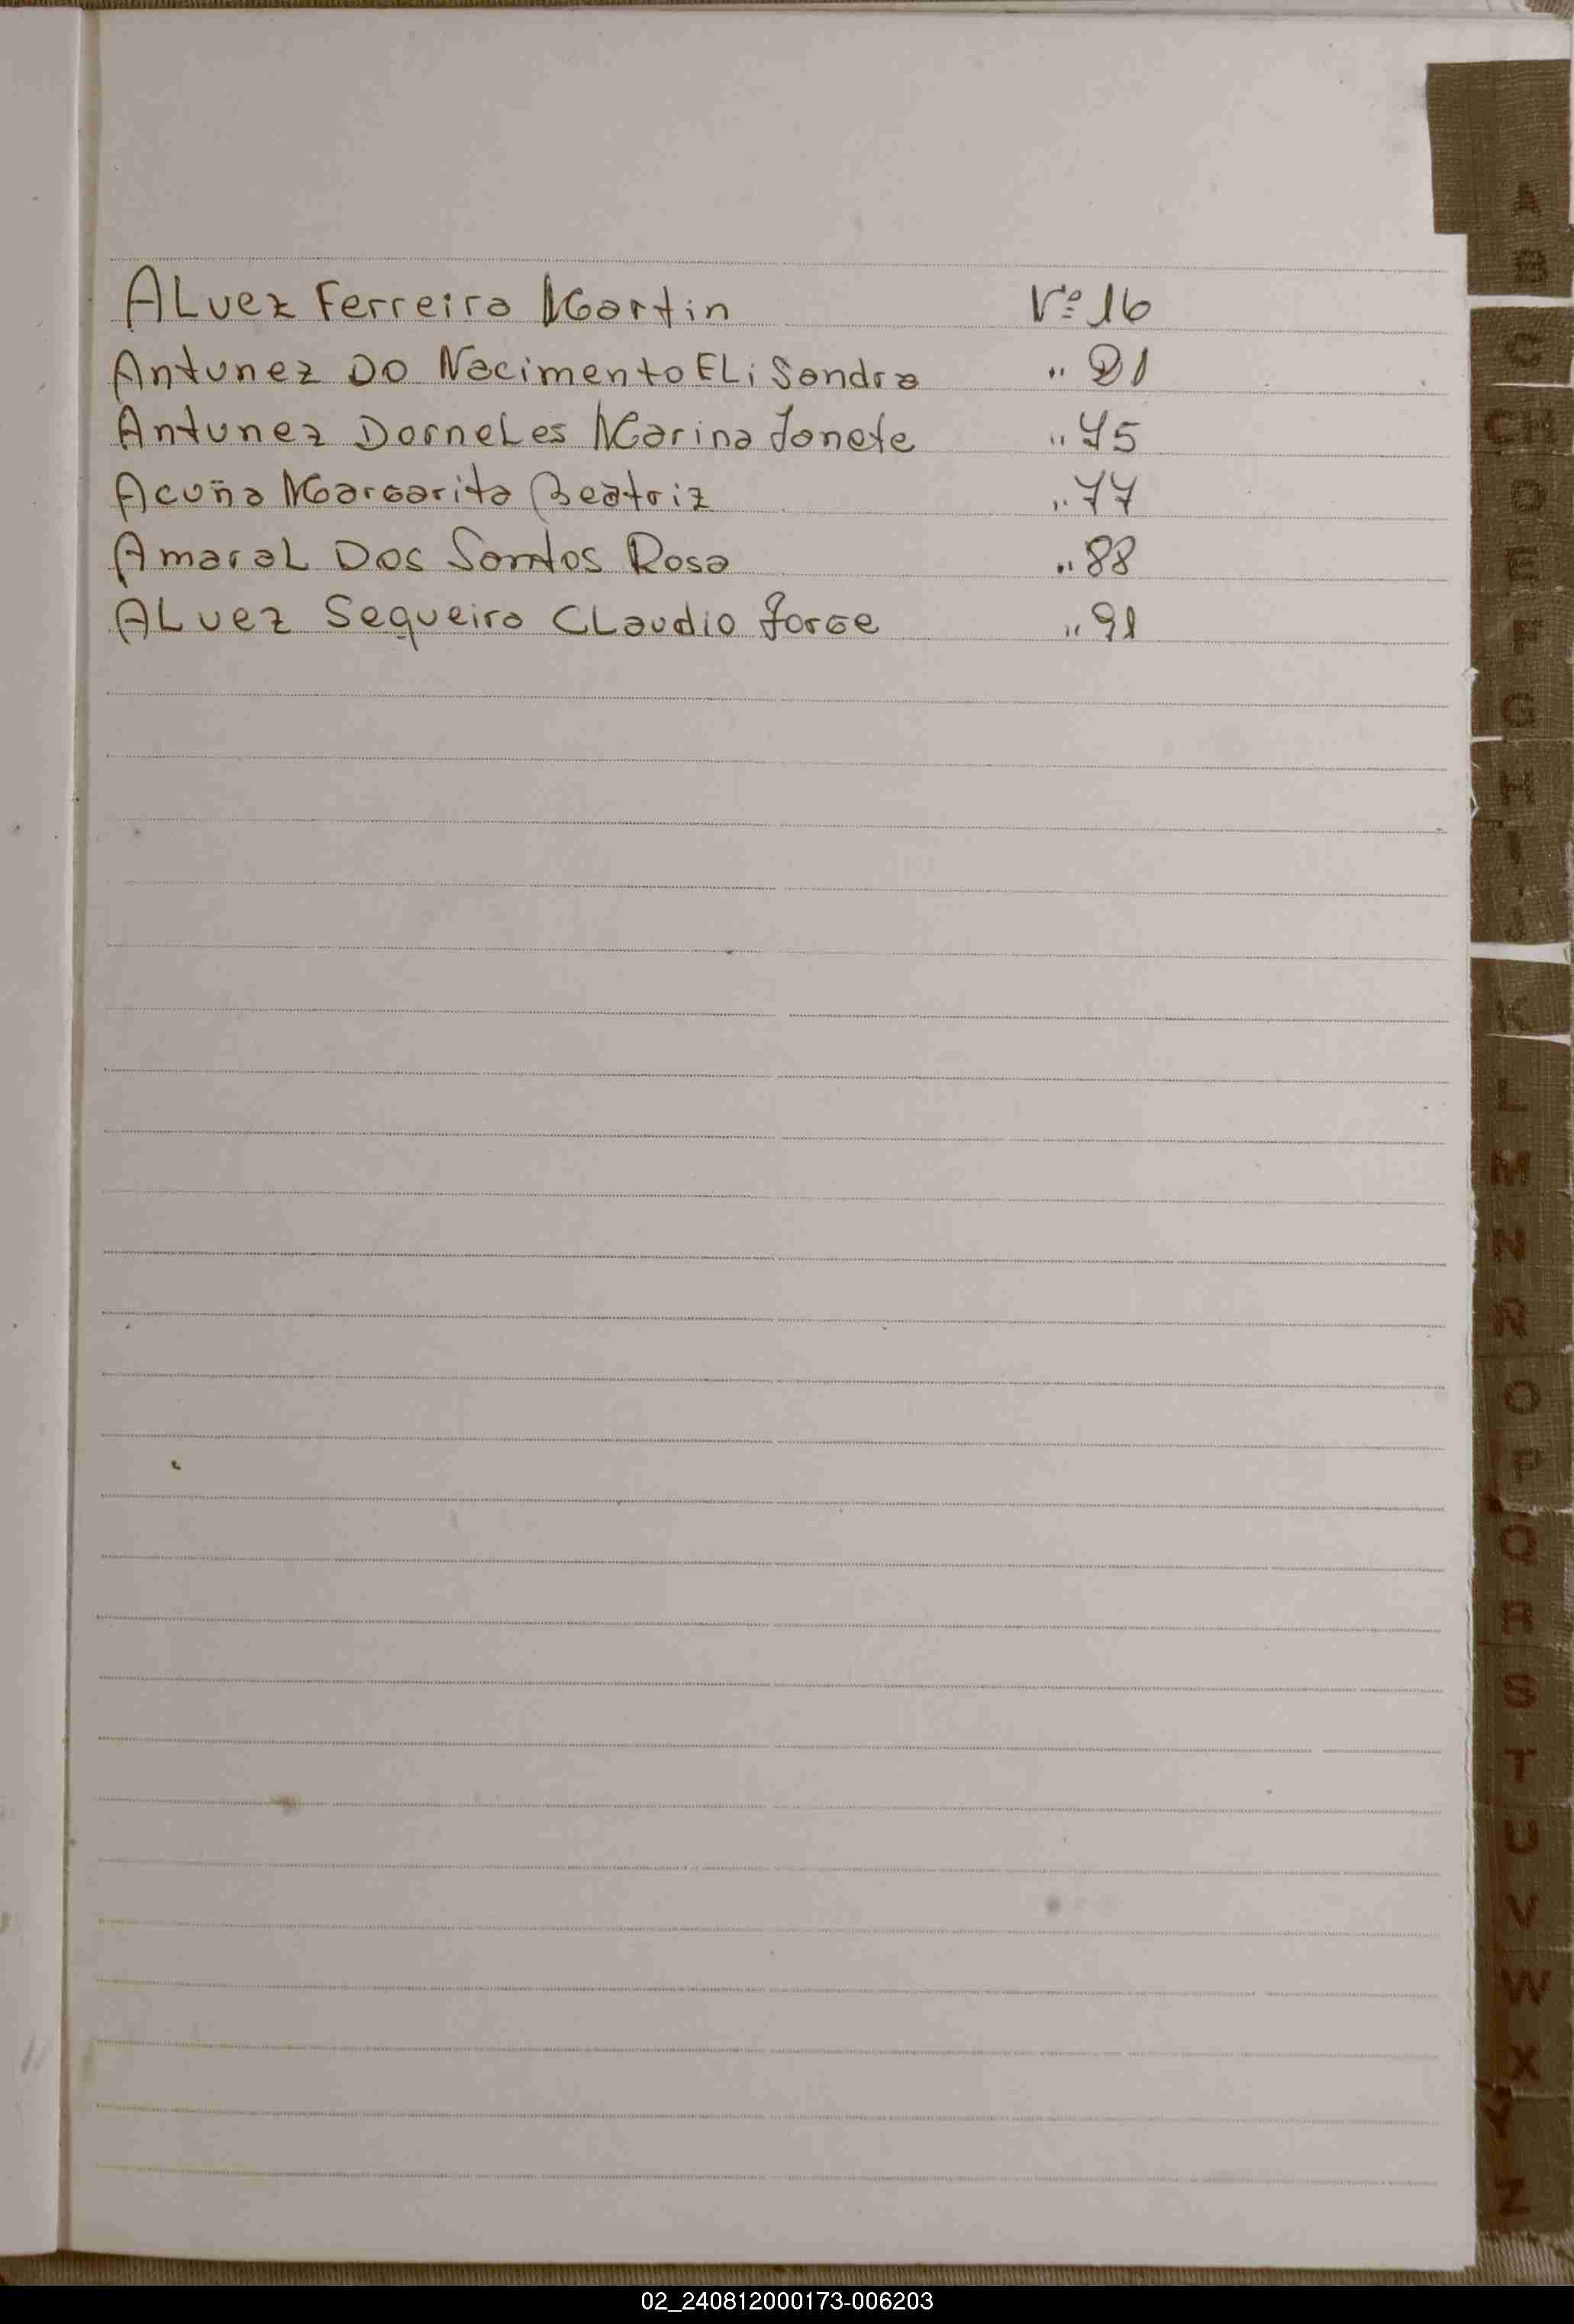 ALvez Ferreira Martin Nº 16
Antunez Do Nacimento ELi Sandra " 21
Antunez DorneLes Marina Janete " 75
Acuña Margarita Beatriz " 77
AmaraL Dos Santos Rosa " 88
ALvez Sequeira CLaudio Jorge " 91
A
B
C
CH
D
E
F
G
H
I
J
K
L
M
N
Ñ
O
P
Q
R
S
T
U
V
W
X
Y
Z
02_240812000173-006203